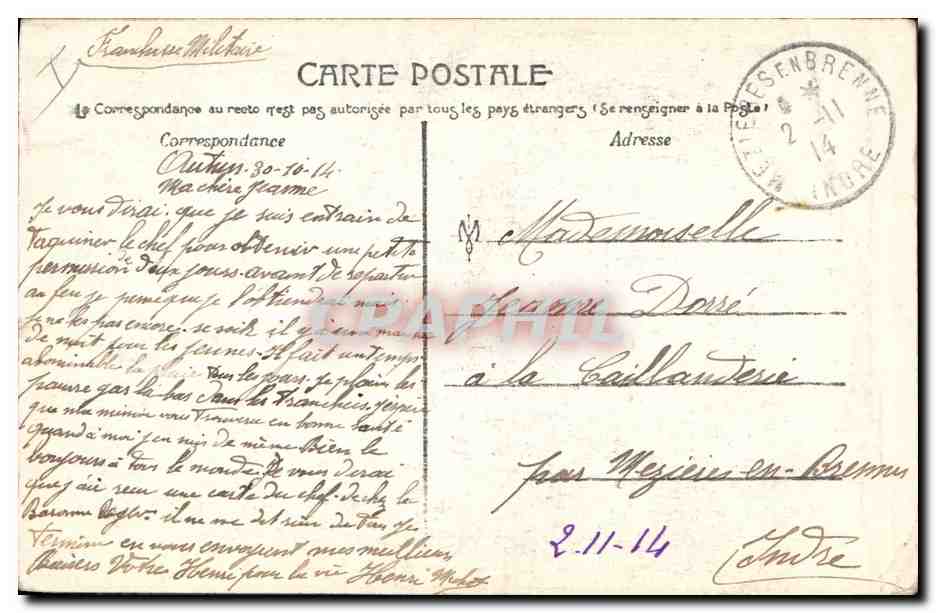 Franchise Militaire
CARTE POSTALE
La Correspondance au recto n'est pas autorisée par tous les pays étrangers (Se renseigner à la Poste)
Correspondance
Autun. 30-10-14
Ma chère Jeanne
Je vous dirai. que je suis entrain de
Taquiner le chef pour obtenir une petite
permission de deux jours. avant de repartir
au feu je pense que je l'obtiendrai mais
je ne les pas encore. se soir il y a une
de nuit pour les jeunes. Il fait un temps
abominable la pluie tous les jours. Je plain les
pauvre gas la bas dans les tranchées. J'espère
que ma mimine vous Trouvera en bonne santé
quand à moi j'en suis de même Bien le
bonjours à tous le monde. Je vous dirai
que j'ai reçu une carte du chef. de chez le
Baronne il ne me dit rien de plus je
Termine en vous envoyent mes meilleurs
Baisers Votre Henri pour la vie Henri
Adresse
Mademoiselle
Jeanne Dorré
à la Caillauderie
par Mezières-en-Brenne
Indre
2-11-14
MEZIERES EN BRENNE
2 -11
14
INDRE
CPAPHIL